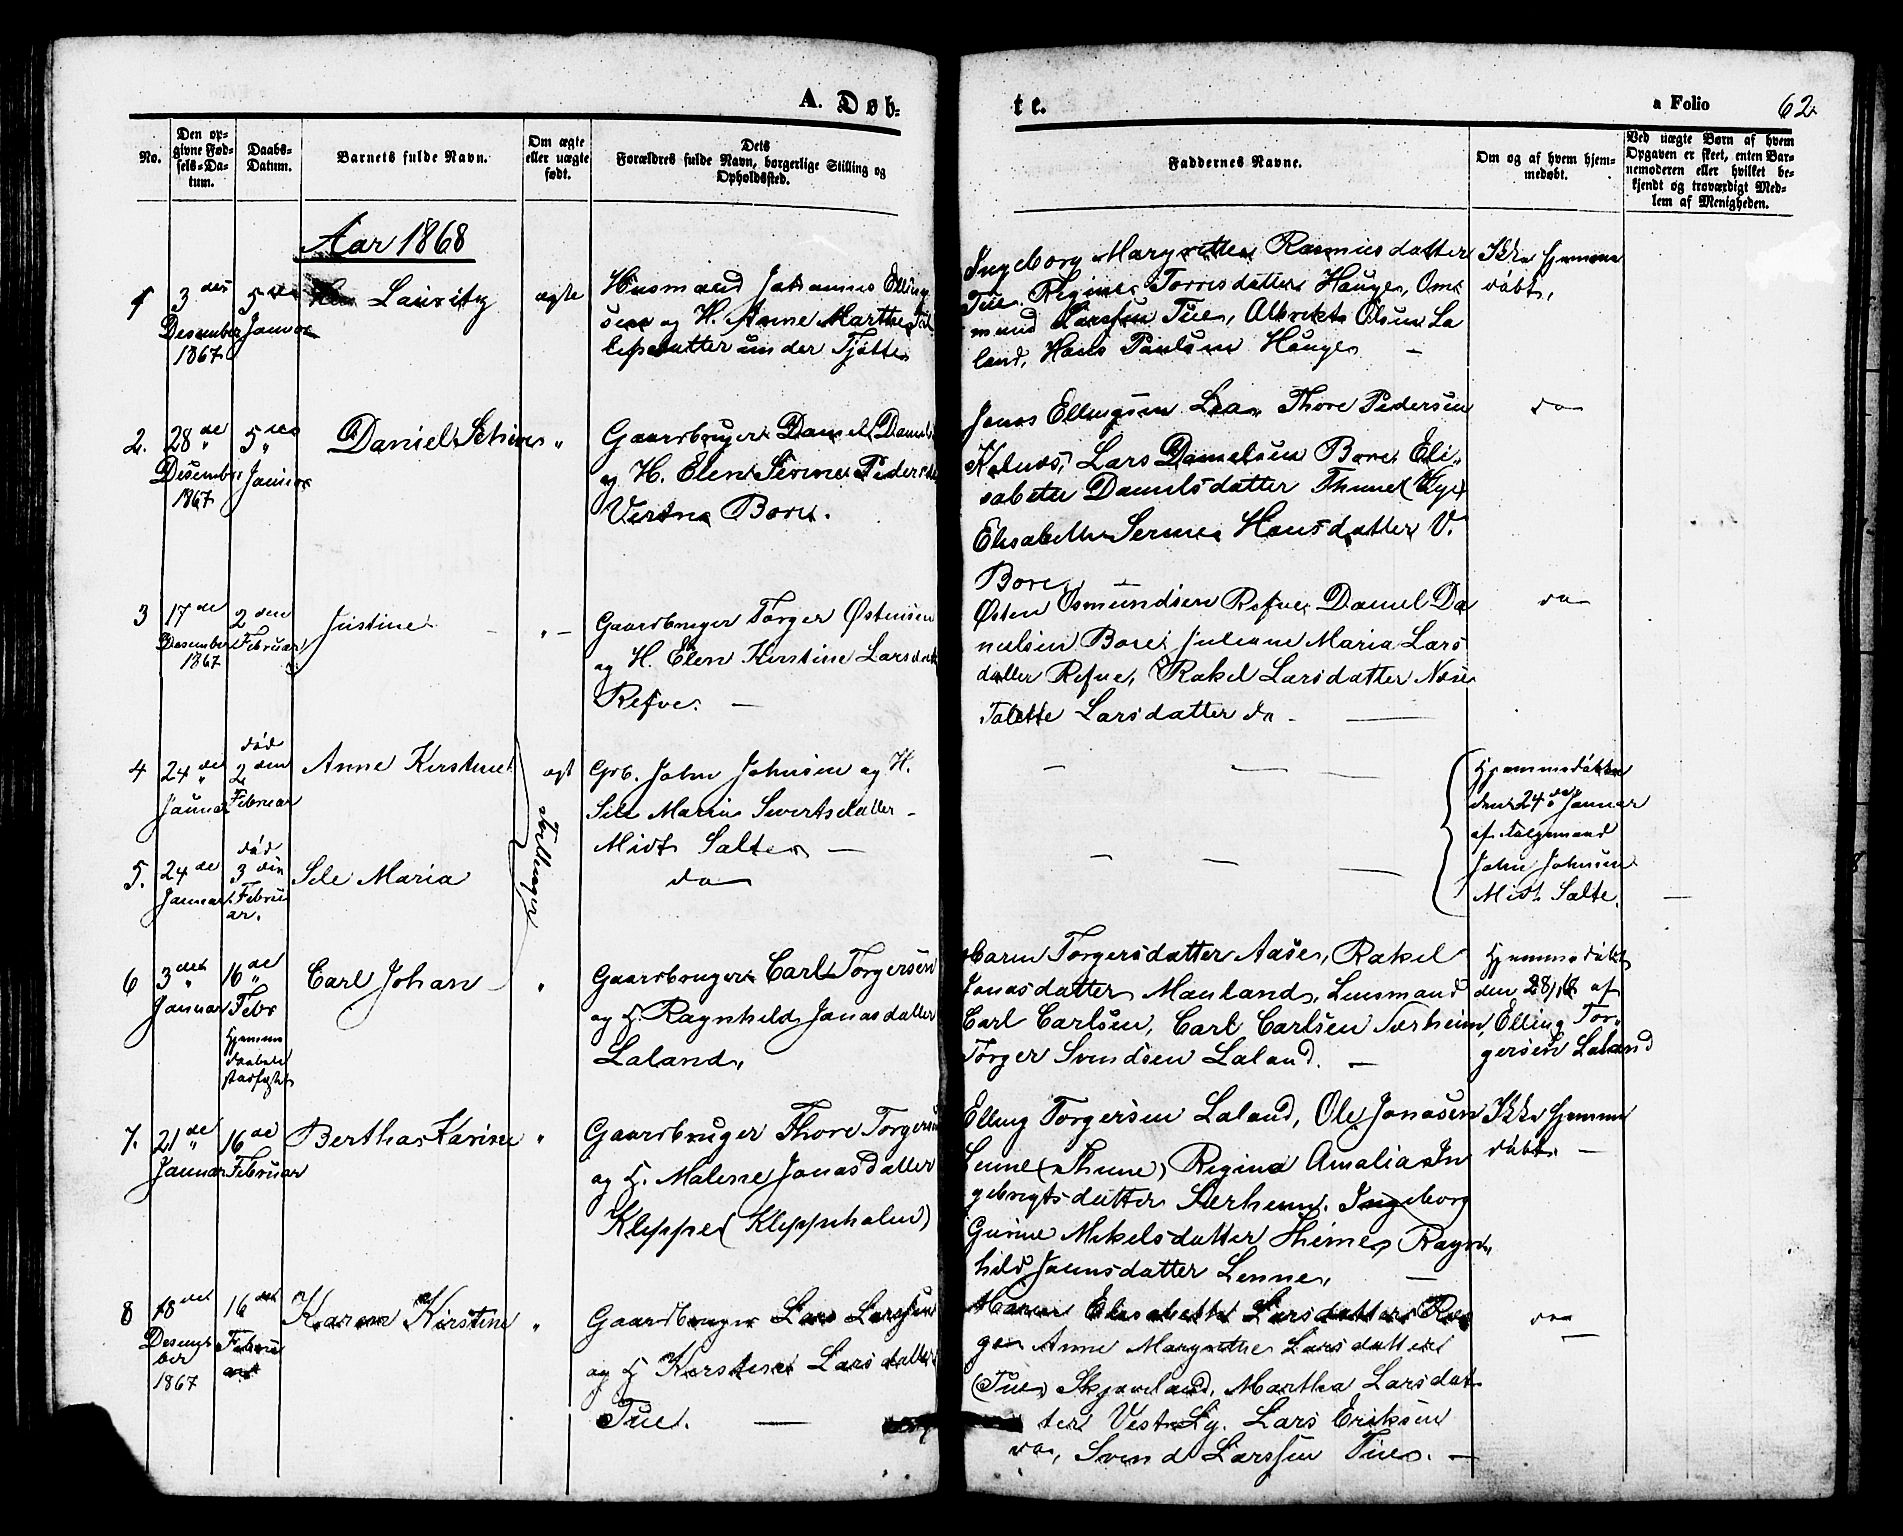 A. Døb-
te.
a Folio
62.
No.
Den op-
givne Fød-
sels-Da-
tum.
Daabs-
Datum.
Barnets fulde Navn.
Om ægte
eller uægte
født.
Dets
Forældres fulde Navn, borgerlige Stilling og
Opholdssted.
Faddernes Navne.
Om og af hvem hjem-
medøbt.
Ved uægte Børn af hvem
Opgaven er skeet, enten Bar-
nemoderen eller hvilket be-
kjendt og troværdigt Med-
lem af Menigheden.
Aar 1868
1
3
Desember
1867
5
Januar
Lauritz
ægte
Husmand Johannes Elling
sen og H. Anne Marthe
under Tjøtte
Ingeborg Margrethe Rasmusdatter
Tue. Regine Torresdatter Hauge, Om
mund Larssen Tue, Olsen La
land, Hans Paulsen Hauge
Ikke hjemme
døbt,
2.
28 de
Desember
1867
5
Januar
Daniel
"
Gaardbruger Daniel
og H. Elen Serine
Bore.
Jonas Ellingsen Thore Pedersen
Lars Danielsen Bore Eli-
sabeta Danielsdatter Thune
Elisabeth Serine Hansdatter V.
Bore
do
3
17 de
Desember
1867
2 den
Februar
Justine
"
Gaardbruger Torger Østensen
og H. Elen Kirstine
Refve.
Østen Osmundsen Refve Daniel Da
nielsen Bore, Juliane Maria Lars
datter Refve, Rakel Larsdatter
Larsdatter do
do
4
24 de
Januar
død
2 den
Februar
Anne Kirstine
Trillinger
ægt
Grb. John Johnsen og H.
Sile Maria Sivertsdatter
Midt Salte
Hjemmedøbt
den 24 de Januar
af
John Johnsen
Midt Salte.
5.
24 de
Januar
død
3 die
Febru
ar.
Sile Maria
do
6
3 det
Januar
16 de
Febr
Hjemme
daaben
stadfæstet
Carl Johan
"
Gaardbruger Carl Torgersen
og H. Ragnhild Jonasdatter
Laland,
Karen Torgersdatter Aase, Rakel
Jonasdatter Mauland, Lensmand
Carl Carlsen, Carl Carlsen Særheim,
Torger Svendsen Laland.
Hjemmedøbt
den af
Elling Tor-
gersen Laland
7.
21 de
Januar
16 de
Februar
Bertha Karine
"
Gaardbruger Thore
og H. Malene Jonasdatter
Kleppe (Kleppholen)
Elling Torgersen Laland, Ole Jonasen
(Thune) Regina Amalia In
gebrigtsdatter Særheim. Ingeborg
Gurine Mikelsdatter Ragn-
hild Jonasdatter
Ikke hjemme
døbt.
8
18 det
Desemb
ber
1867
16
Februar
Karen Kirstine
"
Gaardbruger Lars Larssen
og H Kirstine Larsdatter
Tue.
Elisabeth Larsdatter
Anne Margrethe Larsdatter
(Tue) Skjæveland, Martha Larsdat
ter Vest Ly. Lars Eriksen
do, Svend Larssen Tue.
do